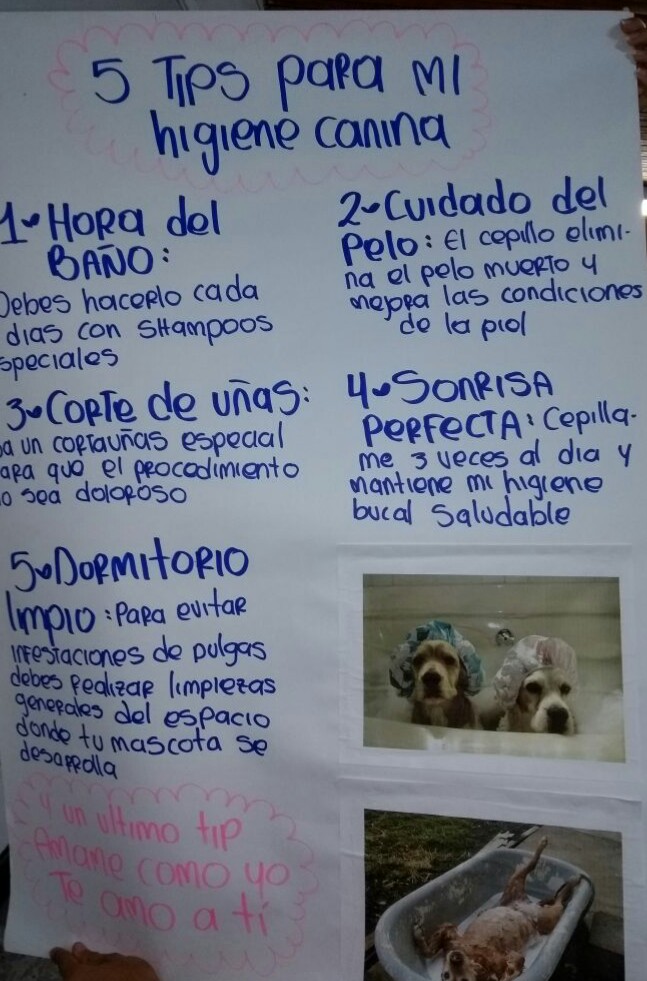 5 Tips para mi
higiene canina
1- Hora del
BAÑO:
Debes hacerlo cada
dias con Shampoos
speciales
2- Cuidado del
Pelo: El cepillo elimi-
na el pelo muerto y
mejora las condiciones
de la piel
3- Corte de uñas:
a un cortauñas especial
ara que el procedimiento
o sea doloroso
4- SONRISA
PERFECTA: Cepilla-
me 3 veces al dia y
mantiene mi higiene
bucal Saludable
5- DORMITORIO
limpio: Para evitar
infestaciones de pulgas
debes realizar limpiezas
generales del espacio
donde tu mascota se
desarrolla
y un ultimo tip
Amame como yo
Te amo a tí